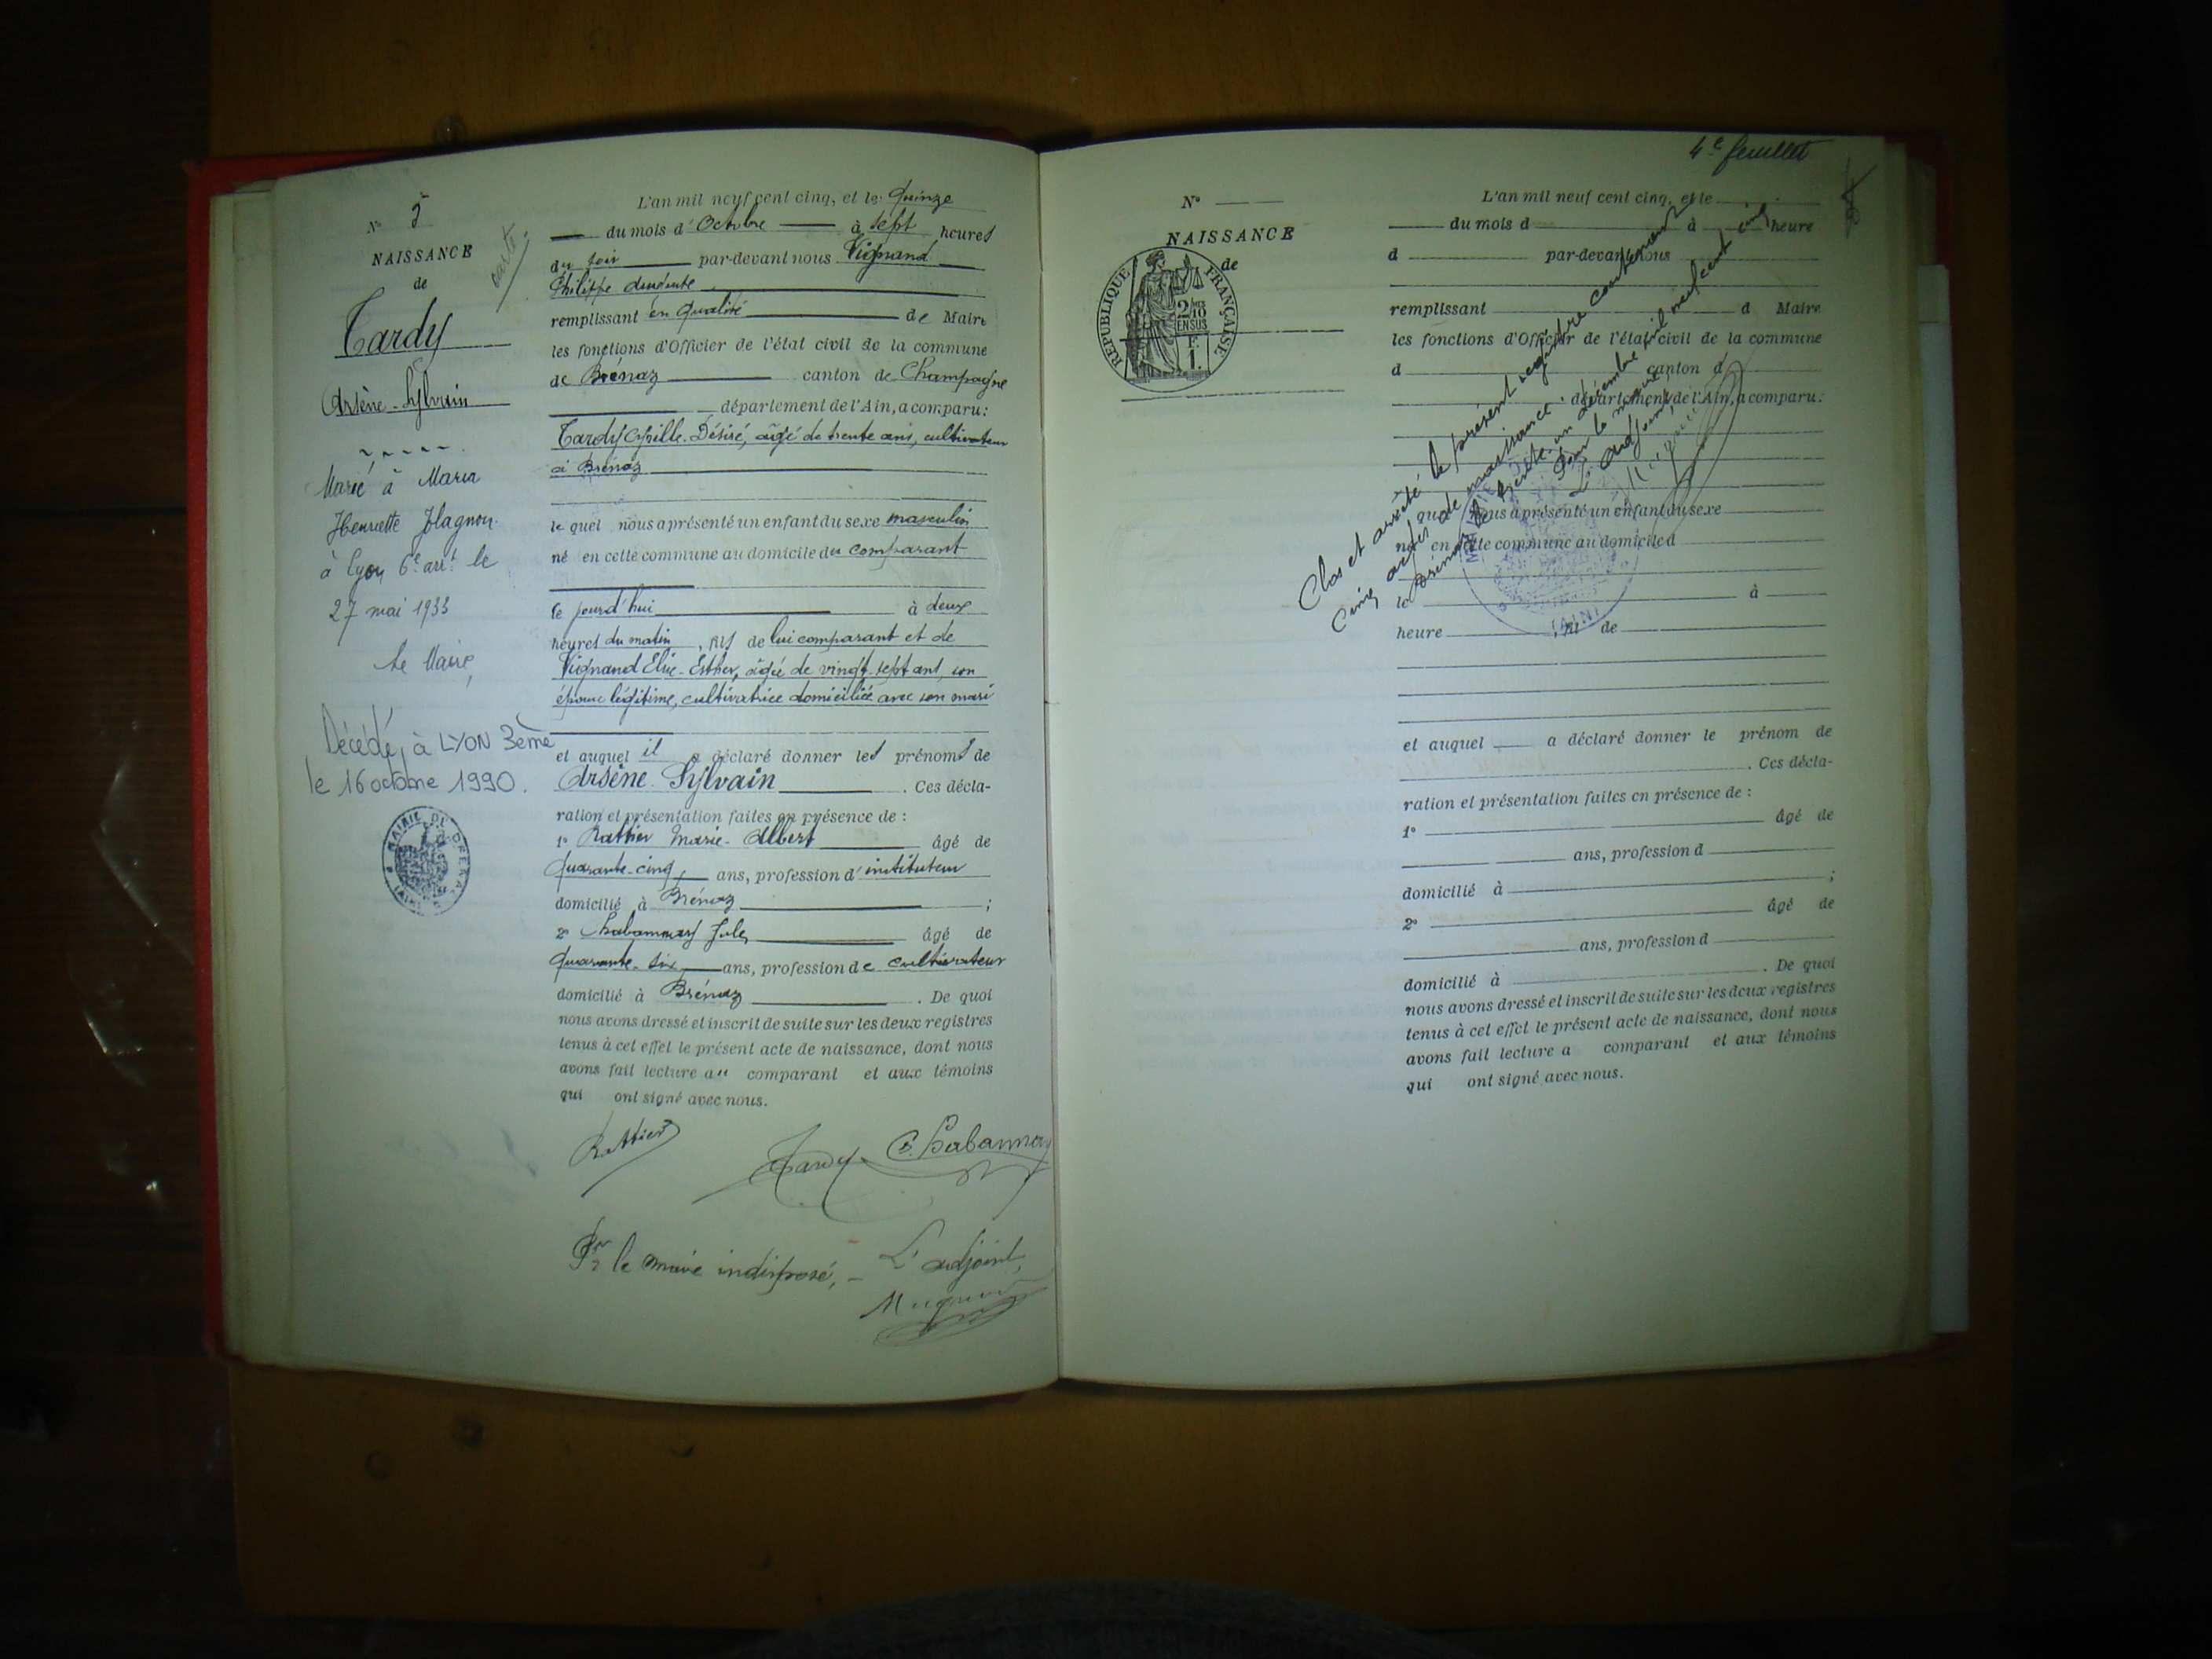 N° 5
NAISSANCE
de
Tardy
Arsène-Sylvain
Marié à Maria
Henriette
à Lyon 6e arrt le
27 mai 1933
Le Maire,
Décédé à LYON 3ème
le 16 octobre 1990.
L'an mil neuf cent cinq, et le Quinze
du mois d'Octobre à sept heures
du soir par-devant nous Vignand
Philippe
remplissant en qualité de Maire
les fonctions d'Officier de l'état civil de la commune
de Brénaz canton de Champagne
département de l'Ain, a comparu:
Tardy Désiré, âgé de trente ans, cultivateur
à Brénaz
le quel nous a présenté un enfant du sexe masculin
né en cette commune au domicile du comparant
ce jourd'hui à deux
heures du matin, fils de lui comparant et de
Vignand Esther, âgée de vingt sept ans, son
épouse légitime, cultivatrice domiciliée avec son mari
et auquel il a déclaré donner les prénoms de
Arsène Sylvain. Ces décla-
ration et présentation faites en présence de :
1° Rattier Marie-Albert âgé de
Quarante-cinq ans, profession d'instituteur
domicilié à Brénaz ;
2° Jules âgé de
Quarante-six ans, profession de cultivateur
domicilié à Brénaz. De quoi
nous avons dressé et inscrit de suite sur les deux registres
tenus à cet effet le présent acte de naissance, dont nous
avons fait lecture au comparant et aux témoins
qui ont signé avec nous.
Rattier Tardy
Pr le maire indisposé, - L'adjoint,
4e feuillet
N°
NAISSANCE
de
RÉPUBLIQUE FRANÇAISE
2/10
EN SUS
F.
1.
L'an mil neuf cent cinq, et le
du mois d à heure
d par-devant nous
remplissant d Maire
les fonctions d'Officier de l'état civil de la commune
d canton d
département de l'Ain, a comparu:
quel nous a présenté un enfant du sexe
né en cette commune au domicile d
le à
heure , fil de
et auquel a déclaré donner le prénom de
. Ces décla-
ration et présentation faites en présence de :
1° âgé de
ans, profession d
domicilié à ;
2° âgé de
ans, profession d
domicilié à . De quoi
nous avons dressé et inscrit de suite sur les deux registres
tenus à cet effet le présent acte de naissance, dont nous
avons fait lecture a comparant et aux témoins
qui ont signé avec nous.
Clos et arrêté le présent registre contenant
cinq actes de naissance.
décembre mil neuf cent cinq
Pour le maire,
L'adjoint,